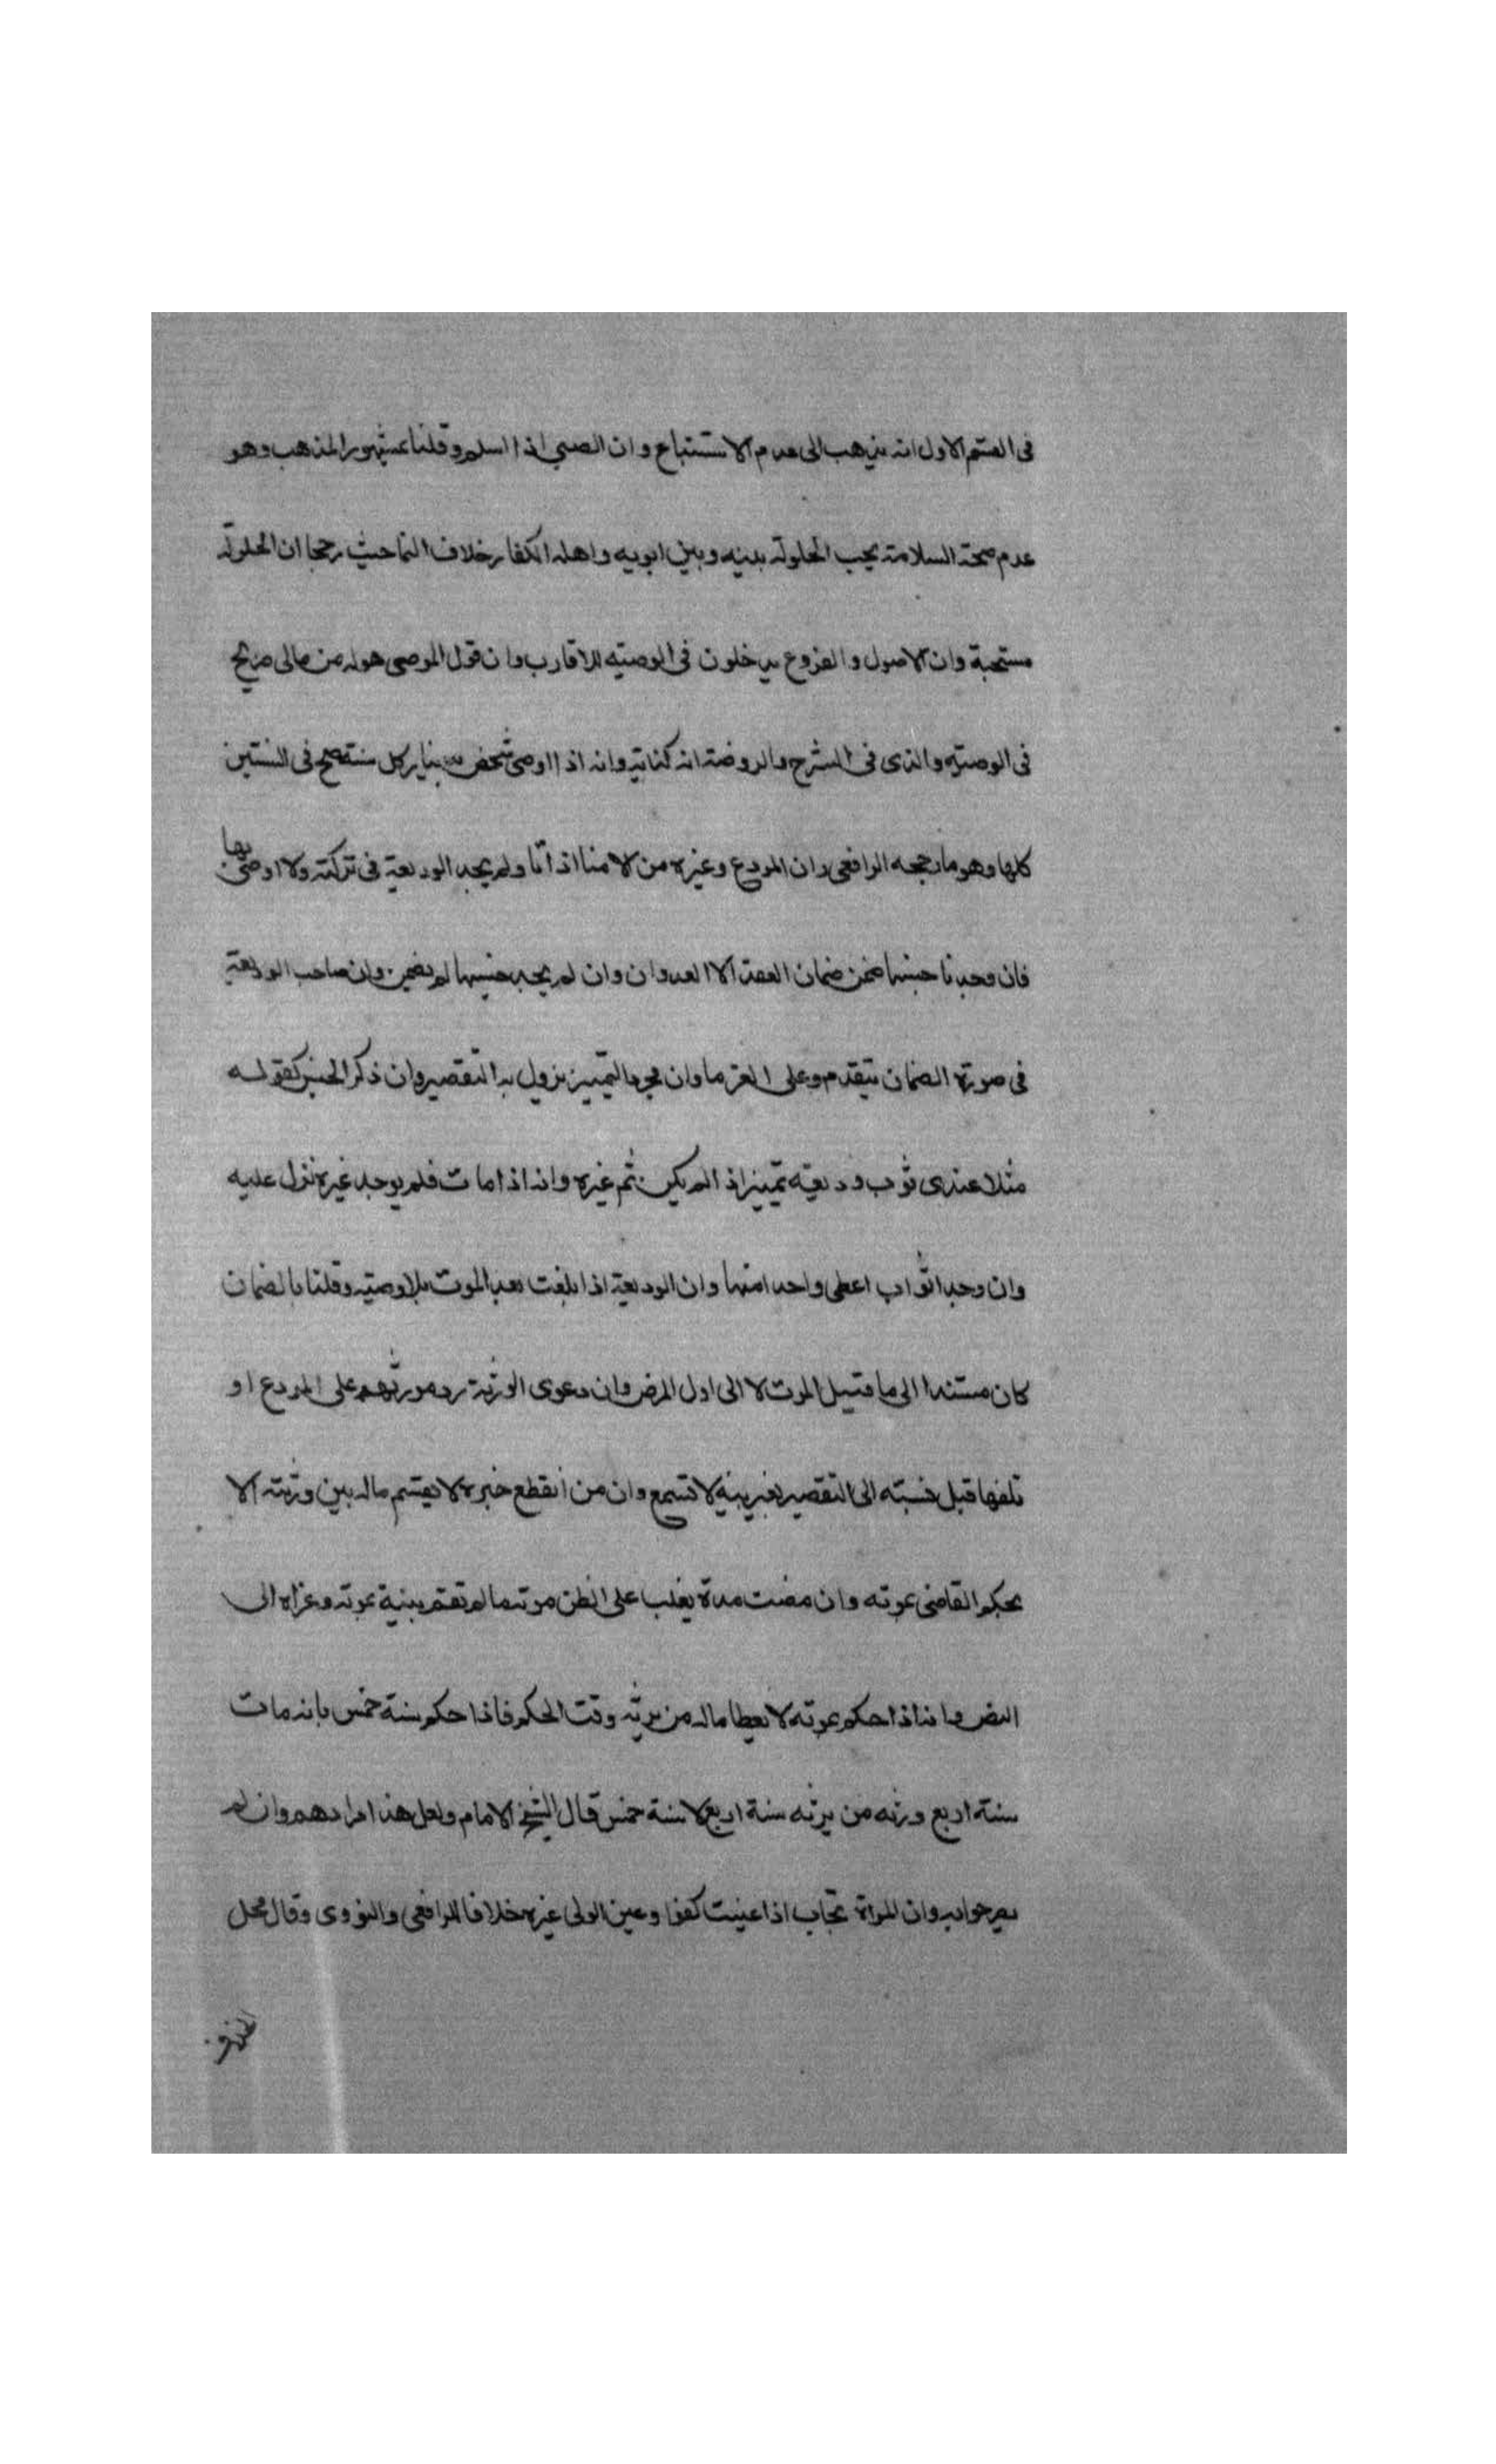 فى القسم الاول انه يذهب الى عدم الاستتباع وان الصبي اذا اسلم وقلنا بمشهور المذهب وهو
عدم صحة السلامة يجب الحلولة بينه وبين ابويه واهله الكفار خلافا لنا حيث رجحا ان الحلولة
مستحبة وان الاصول والفروع يدخلون فى الوصيه للاقارب وان قول الموصى هو له من مالى صريح
فى الوصيه والذى فى الشرح والروضة انه كناية وانه اذا اوصى شخص بدينار كل سنة صح فى السنين
كلها وهو ما رجحه الرافعى وان المودع وغيره من الامنا اذا مات ولم يجد الوديعة فى تركته ولا اوصى بها
فان وجدنا جنسها ضمن ضمان العقد الا العدوان وان لم يجد جنسها لم يضمن وان صاحب الوديعة
فى صورة الضمان يتقدم وعلى الغرما وان مجرد التميز يزول به التقصير وان ذكر الجنس كقوله
مثلا عندى ثوب وديعه تميز اذا لم يكن ثم غيره وانه اذا مات فلم يوجد غيره نزل عليه
وان وجد اثواب اعطى واحدا منها وان الوديعة اذا بلغت بعد الموت بلا وصيه وقلنا بالضمان
كان مستندا الى ما قبيل الموت لا الى اول المرض وان دعوى الورثة رد مورثهم على المودع او
تلفها قبل نسبته الى التقصير بغير بينه لا تسمع وان من انقطع خبره لا يقسم ماله بين ورثته الا
بحكم القاضى بموته وان مضت مدة يغلب على الظن موته ما لم تقم بينة بموته وعزاه الى
النص وانه اذا حكم بموته لا يعطا ماله من يرثه وقت الحكم فاذا حكم سنة خمس بانه مات
سنة اربع ورثه من يرثه سنة اربع لا سنة خمس قال الشيخ الامام ولعل هذا مرادهم وان لم
يصرحوا به وان المراة تجاب اذا عينت كفوا وعين الولى غيره خلافا للرافعى والنووى وقال محل